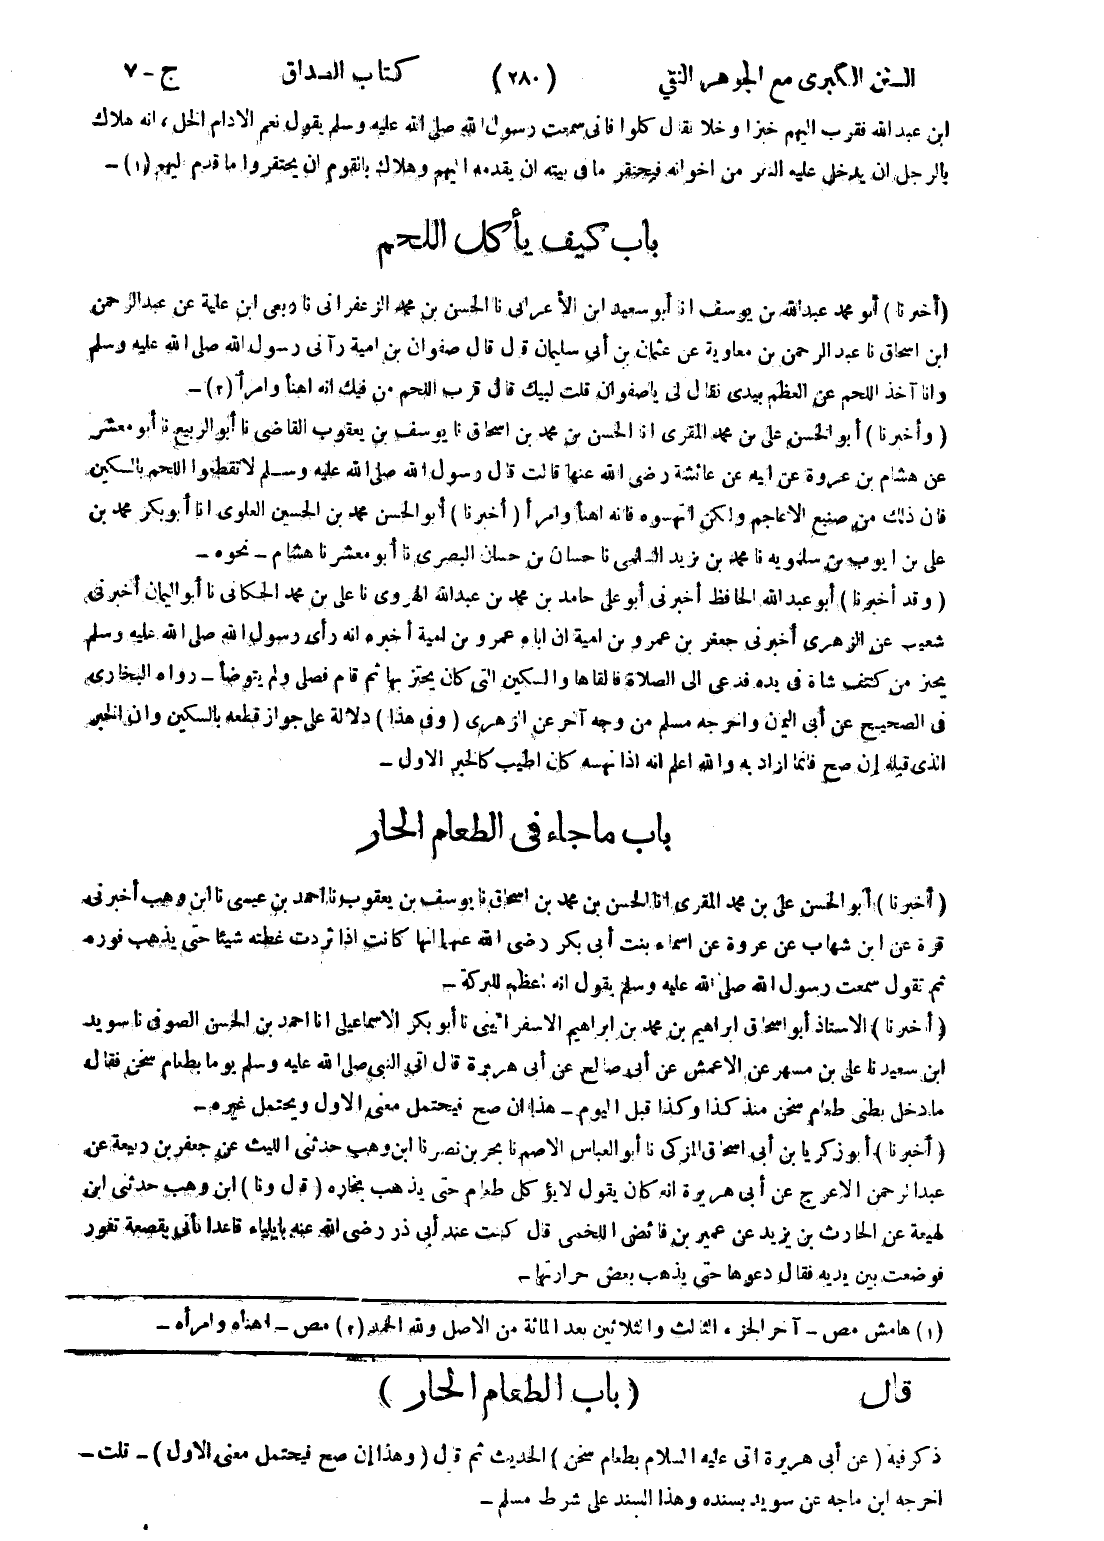 السنن الكبرى مع الجوهر النقي (٢٨٠) كتاب الصداق ج-٧
ابن عبد الله فقرب اليهم خبزا وخلا فقال كلوا فانى سمعت رسول الله صلى الله عليه وسلم يقول نعم الادام الخل ، انه هلاك
بالرجل ان يدخل عليه النفر من اخوانه فيحتقر ما فى بيته ان يقدمه اليهم وهلاك بالقوم ان يحتقروا ما قدم اليهم (١) ـ
باب كيف يأكل اللحم
(أخبرنا) أبو محمد عبدالله بن يوسف انا أبوسعيد ابن الأعرابى نا الحسن بن محمد الزعفرانى نا ربعى ابن علية عن عبدالرحمن
ابن اسحاق نا عبد الرحمن بن معاوية عن عثمان بن أبي سليمان قال قال صفوان بن امية رآنى رسول الله صلى الله عليه وسلم
وانا آخذ اللحم عن العظم بيدى فقال لى ياصفوان قلت لبيك قال قرب اللحم من فيك انه اهنأ وامرأ (٢) ـ
(وأخبرنا) أبو الحسن على بن محمد المقرى انا الحسن بن محمد بن اسحاق نا يوسف بن يعقوب القاضى نا أبو الربيع نا أبو معشر
عن هشام بن عروة عن ابيه عن عائشة رضى الله عنها قالت قال رسول الله صلى الله عليه وسلم لا تقطعوا اللحم بالسكين
فان ذلك من صنيع الاعاجم ولكن انهسوه فانه اهنأ وامرأ (أخبرنا) أبو الحسن محمد بن الحسين العلوى انا أبوبكر محمد بن
على بن ايوب بن سلمويه نا محمد بن يزيد السلمى نا حسان بن حسان البصرى نا أبو معشر نا هشام ـ نحوه ـ
(وقد أخبرنا) أبو عبد الله الحافظ أخبرنى أبو على حامد بن محمد بن عبدالله الهروى نا على بن محمد الجكانى نا أبو اليمان أخبرنى
شعيب عن الزهرى أخبرنى جعفر بن عمرو بن امية ان اباه عمرو بن امية أخبره انه رأى رسول الله صلى الله عليه وسلم
يحتز من كتف شاة فى يده فدعى الى الصلاة فالقاها والسكين التى كان يحتز بها ثم قام فصلى ولم يتوضأ ـ رواه البخارى
فى الصحيح عن أبى اليمان واخرجه مسلم من وجه آخر عن الزهرى (وفى هذا) دلالة على جواز قطعه بالسكين وان الخبر
الذى قبله إن صح فانما اراد به والله اعلم انه اذا نهسه كان اطيب كالخبر الاول ـ
باب ماجاء فى الطعام الحار
(أخبرنا) أبو الحسن على بن محمد المقرى انا الحسن بن محمد بن اسحاق نا يوسف بن يعقوب نا احمد بن عيسى نا ابن وهب أخبرنى
قرة عن ابن شهاب عن عروة عن اسماء بنت أبى بكر رضى الله عنها انها كانت اذا ثردت غطته شيئا حتى يذهب فوره
ثم تقول سمعت رسول الله صلى الله عليه وسلم يقول انه اعظم للبركة ـ
(أخبرنا) الاستاذ أبو اسحاق ابراهيم بن محمد بن ابراهيم الاسفرائينى نا أبو بكر الاسماعيلى انا احمد بن الحسن الصوفى نا سويد
ابن سعيد نا على بن مسهر عن الاعمش عن أبى صالح عن أبى هريرة قال اتى النبى صلى الله عليه وسلم يوما بطعام سخن فقال
مادخل بطنى طعام سخن منذ كذا وكذا قبل اليوم ـ هذا ان صح فيحتمل معنى الاول ويحتمل غيره ـ
(أخبرنا) أبو زكريا بن أبى اسحاق المزكى نا أبو العباس الاصم نا بحر بن نصر نا ابن وهب حدثنى الليث عن جعفر بن ربيعة عن
عبدالرحمن الاعرج عن أبى هريرة انه كان يقول لايؤكل طعام حتى يذهب بخاره (قال ونا) ابن وهب حدثنى ابن
لهيعة عن الحارث بن يزيد عن عمير بن فائض اللخمى قال كنت عند أبى ذر رضى الله عنه بايلياء قاعدا فأتى بقصعة تفور
فوضعت بين يديه فقال دعوها حتى يذهب بعض حرارتها ـ
(١) هامش مص ـ آخر الجزء الثالث والثلاثين بعد المائة من الاصل ولله الحمد (٢) مص ـ اهنأه وامرأه ـ
قال (باب الطعام الحار)
ذكر فيه (عن أبى هريرة اتى عليه السلام بطعام سخن) الحديث ثم قال (وهذا إن صح فيحتمل معنى الاول) ـ قلت ـ
اخرجه ابن ماجه عن سويد بسنده وهذا السند على شرط مسلم ـ